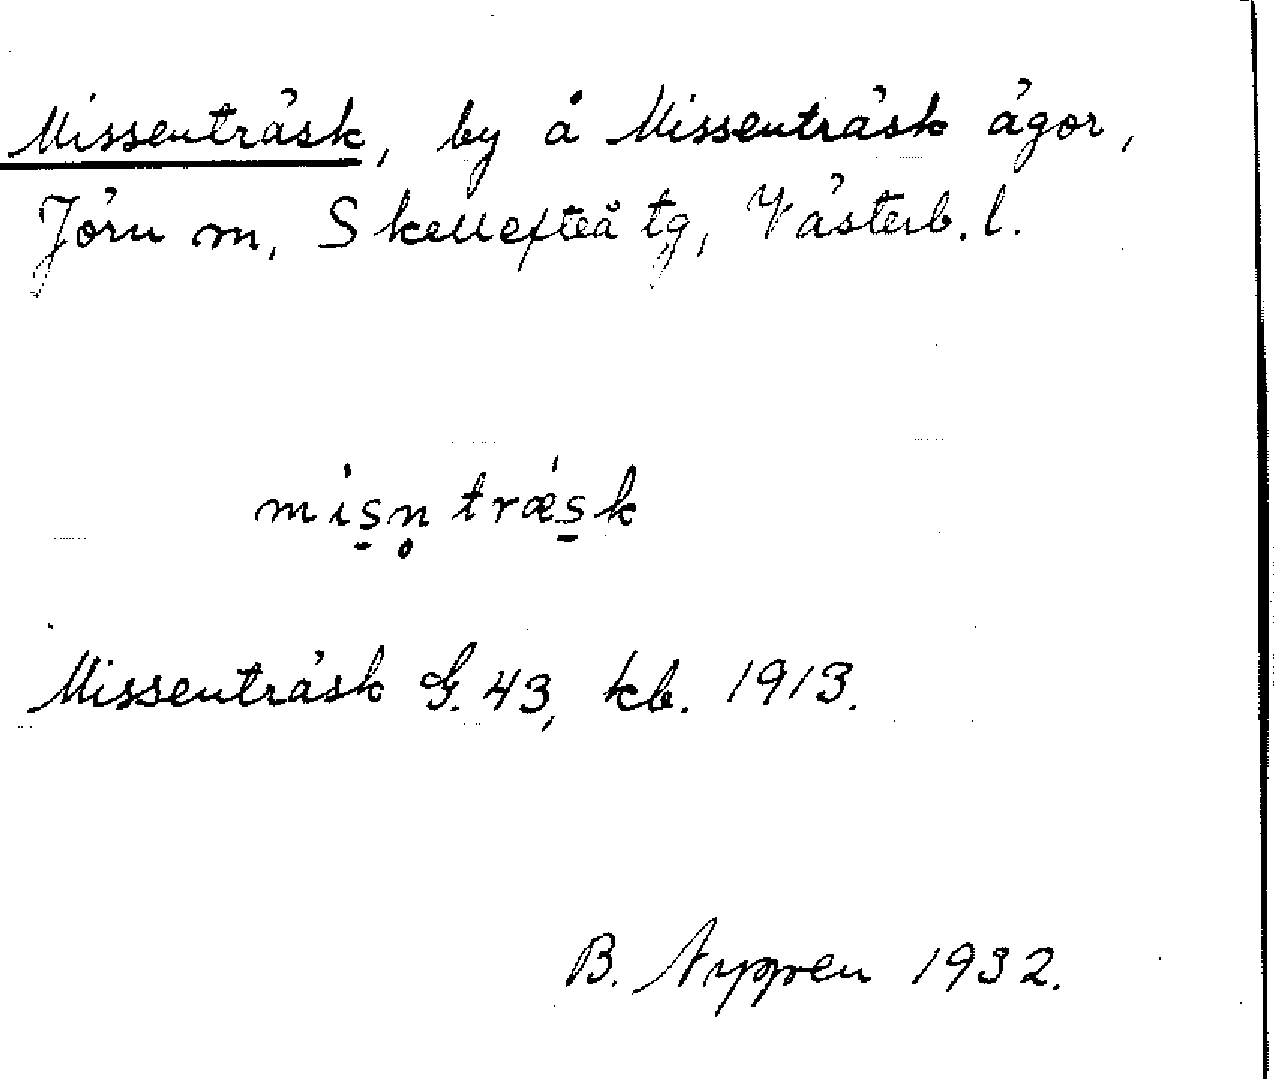 Missenträsk, by å Missenträsk ägor,
Jörn sn, Skellefteå tg, Västerb. l.
misn̥ træsk
Missenträsk G. 43, kb. 1913.
B. Nygren 1932.